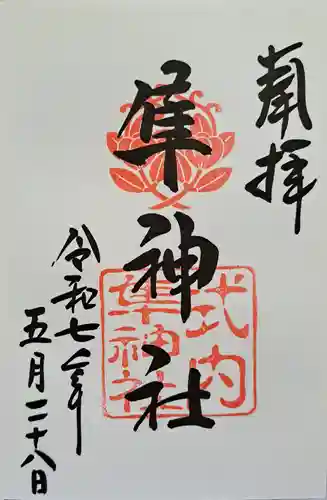 奉拝
隼神社
式内
隼神社
令和七年
五月二十八日